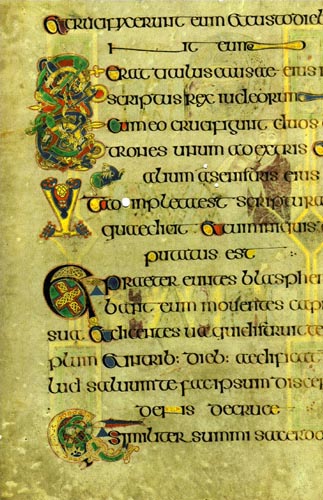 et crucifixerunt eum et custodieb
nt eum
Et erat titulus causae eius
scriptus rex iudeorum
Et cum eo crucifigunt duos
trones unum a dextris
alium a senistris eius
impleta est scriptura
quae dicit et cum iniquis
putatus est
Et praeter euntes blasphem
bant eum mouentes cap
sua et dicentes ua qui distruit te
plum et in trib: dieb: aedificat
lud saluum te fac ipsum discen
dens de cruce
Et similiter summi sacerdo